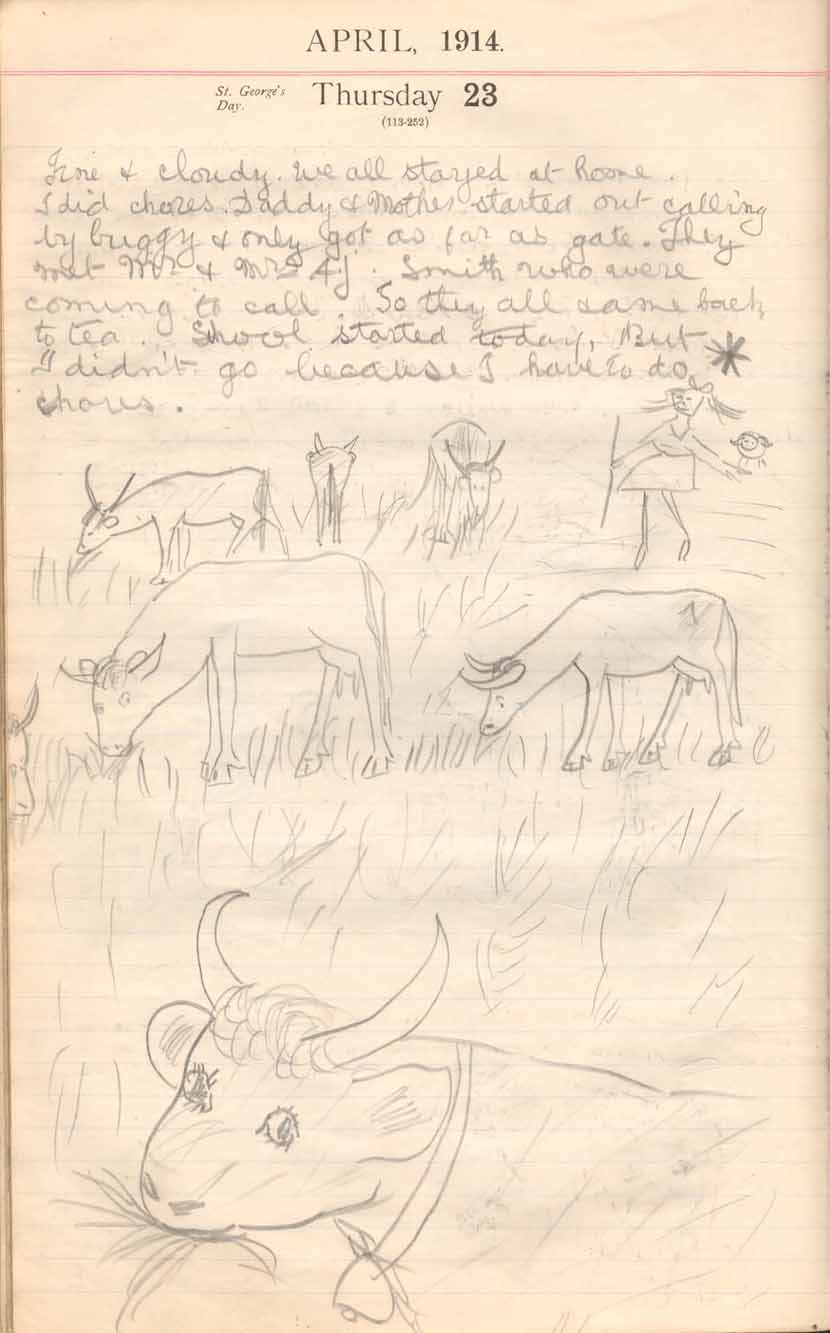 APRIL, 1914.
St. George's
Day.
Thursday 23
(113-252)
Fine & cloudy. We all stayed at home.
I did chores. Daddy & Mother started out calling
by buggy & only got as far as gate. They
met Mr & Mrs A.J. Smith who were
coming to call. So they all came back
to tea. School started today, But
I didn't go because I have to do
chores.